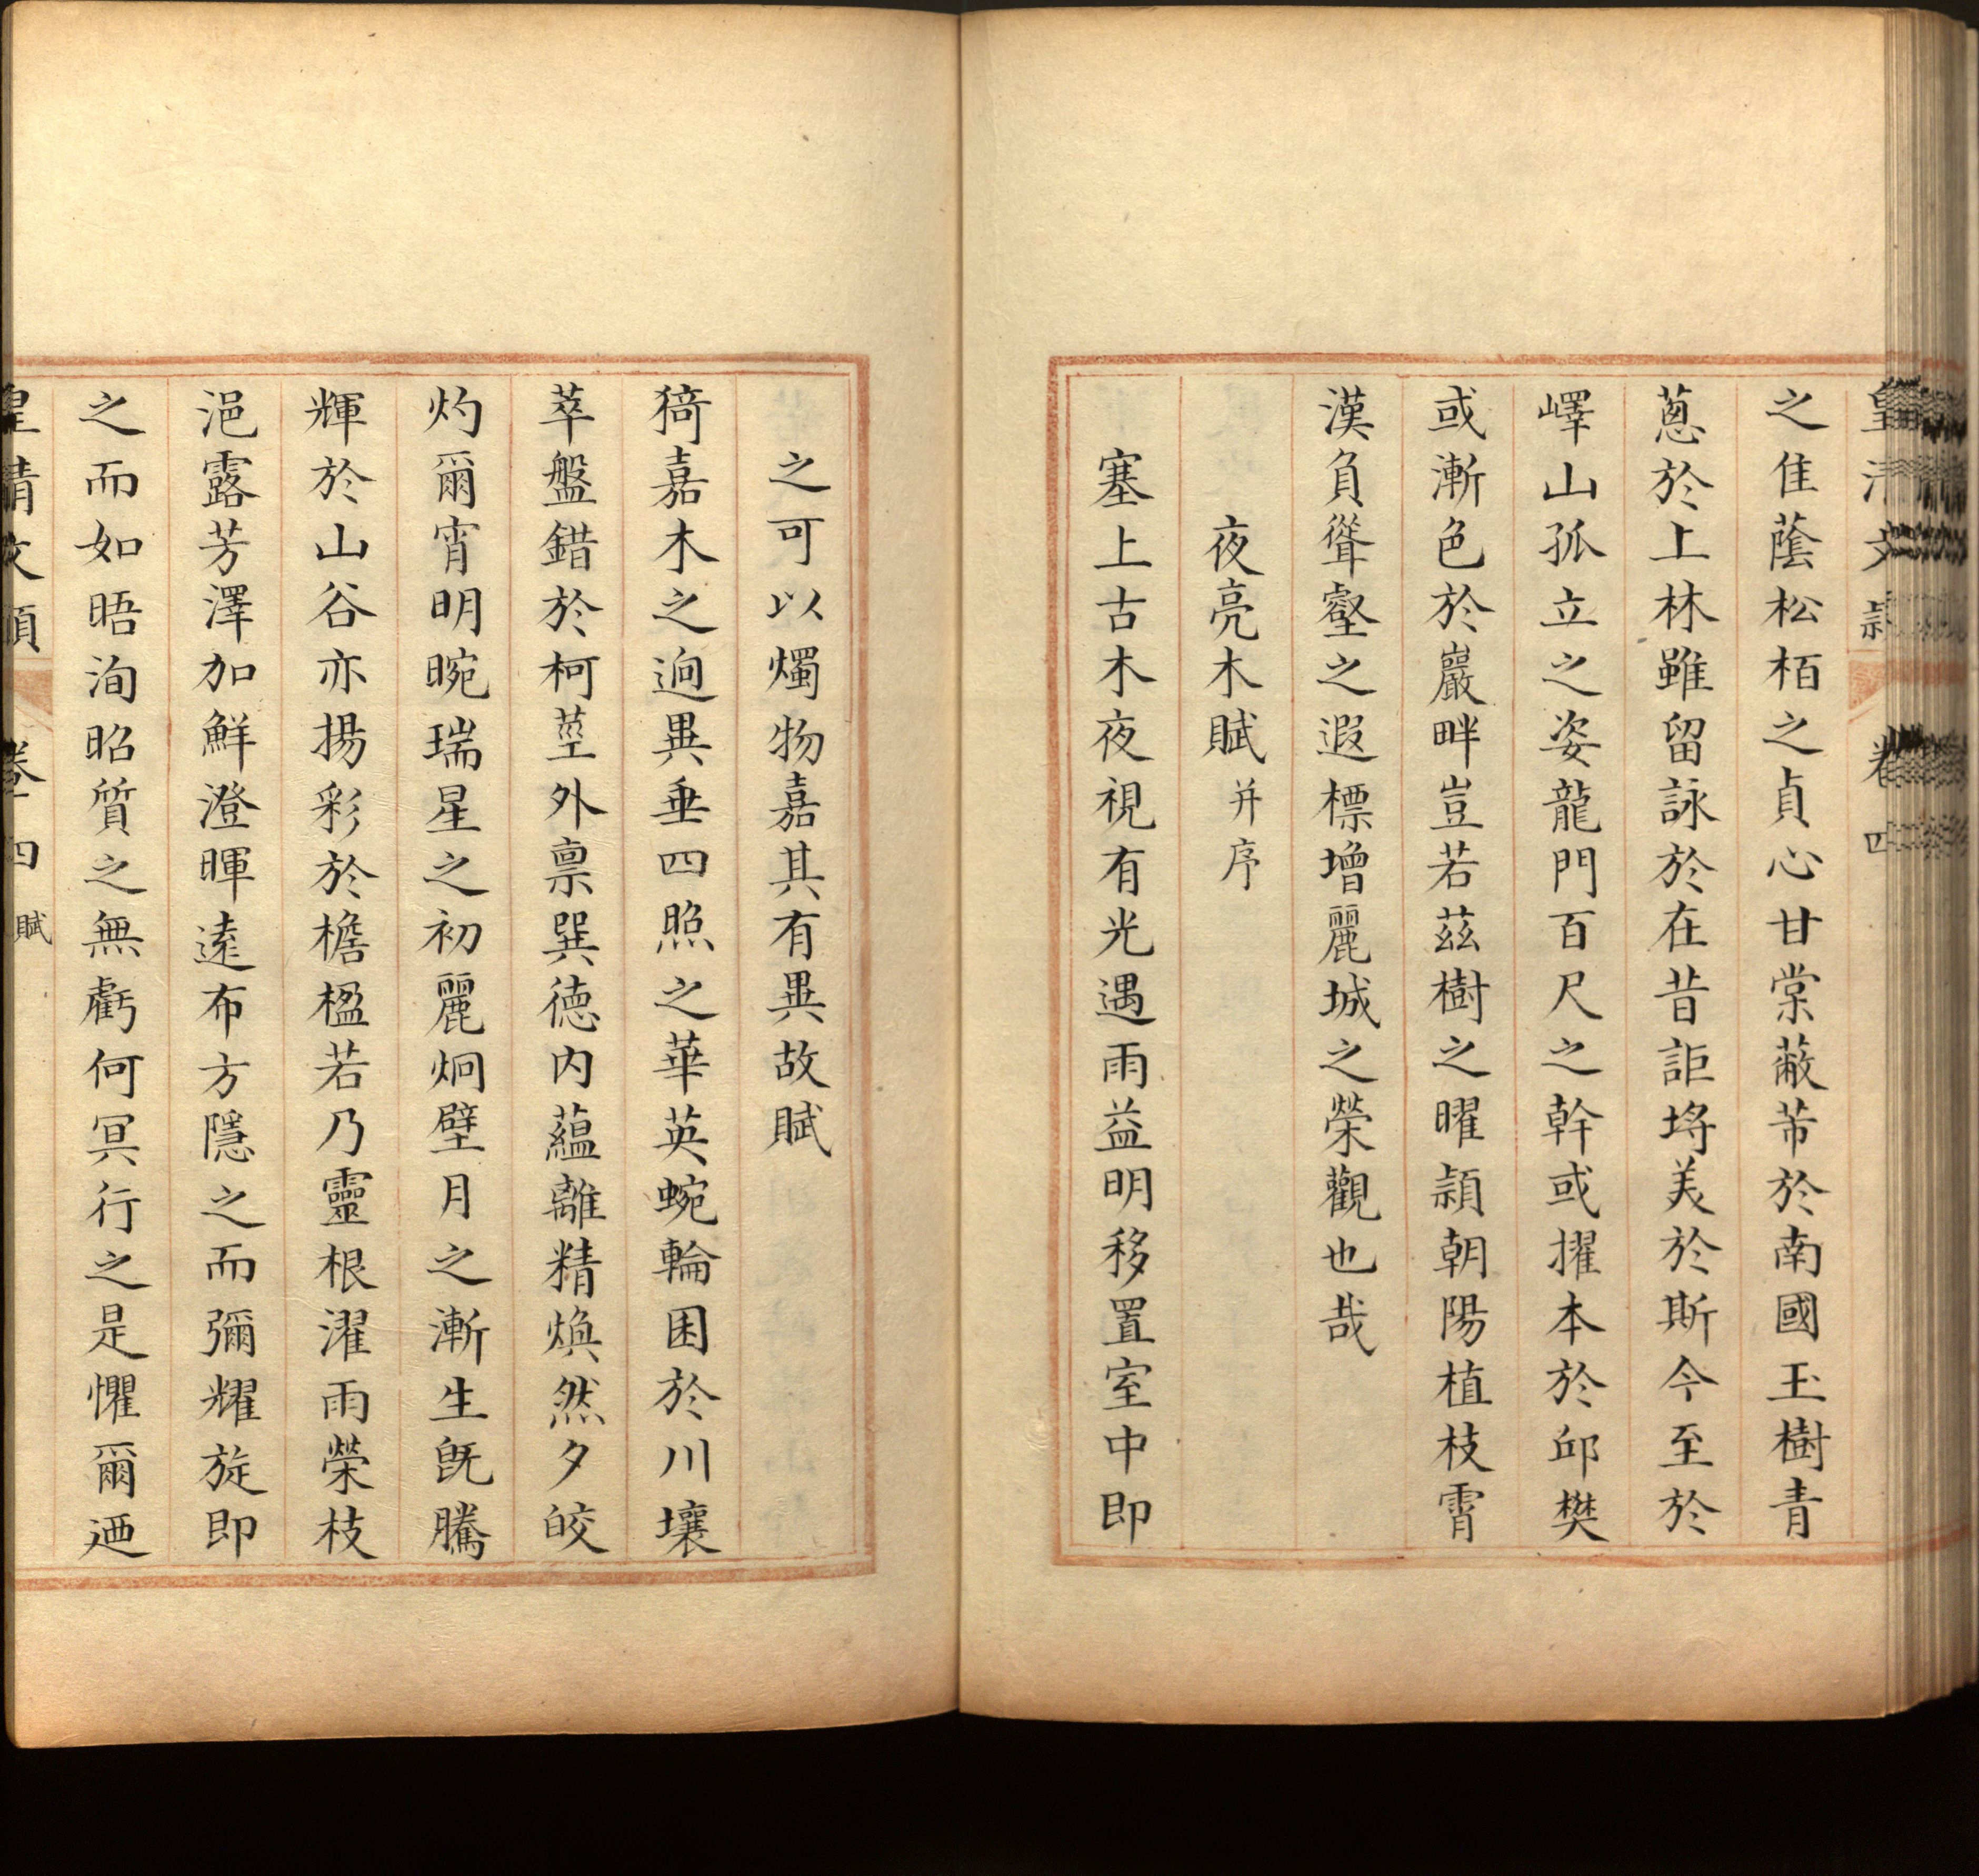 皇清文穎 卷四
之佳蔭松栢之貞心甘棠蔽芾於南國玉樹青
蔥於上林雖留詠於在昔詎埓美於斯今至於
嶧山孤立之姿龍門百尺之幹或擢本於邱樊
或漸色於巖畔豈若茲樹之曜頴朝陽植枝霄
漢負聳壑之遐標增麗城之榮觀也哉
夜亮木賦并序
塞上古木夜視有光遇雨益明移置室中即
之可以燭物嘉其有異故賦
猗嘉木之逈異垂四照之華英蜿輪囷於川壤
萃盤錯於柯莖外禀巽德内蘊離精煥然夕皎
灼爾宵明晼瑞星之初麗炯璧月之漸生旣騰
輝於山谷亦揚彩於檐楹若乃靈根濯雨榮枝
浥露芳澤加鮮澄暉遠布方隱之而彌耀旋即
之而如晤洵昭質之無虧何冥行之是懼爾迺
皇清文穎 卷四 賦